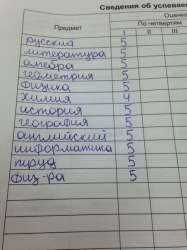 Сведения об успеваем
Предмет
Оценк
По четвертям
I II III
русский 5
литература 5
алгебра 5
геометрия 5
физика 5
химия 4
история 5
география 5
английский 5
информатика 5
труд 5
физ-ра 5